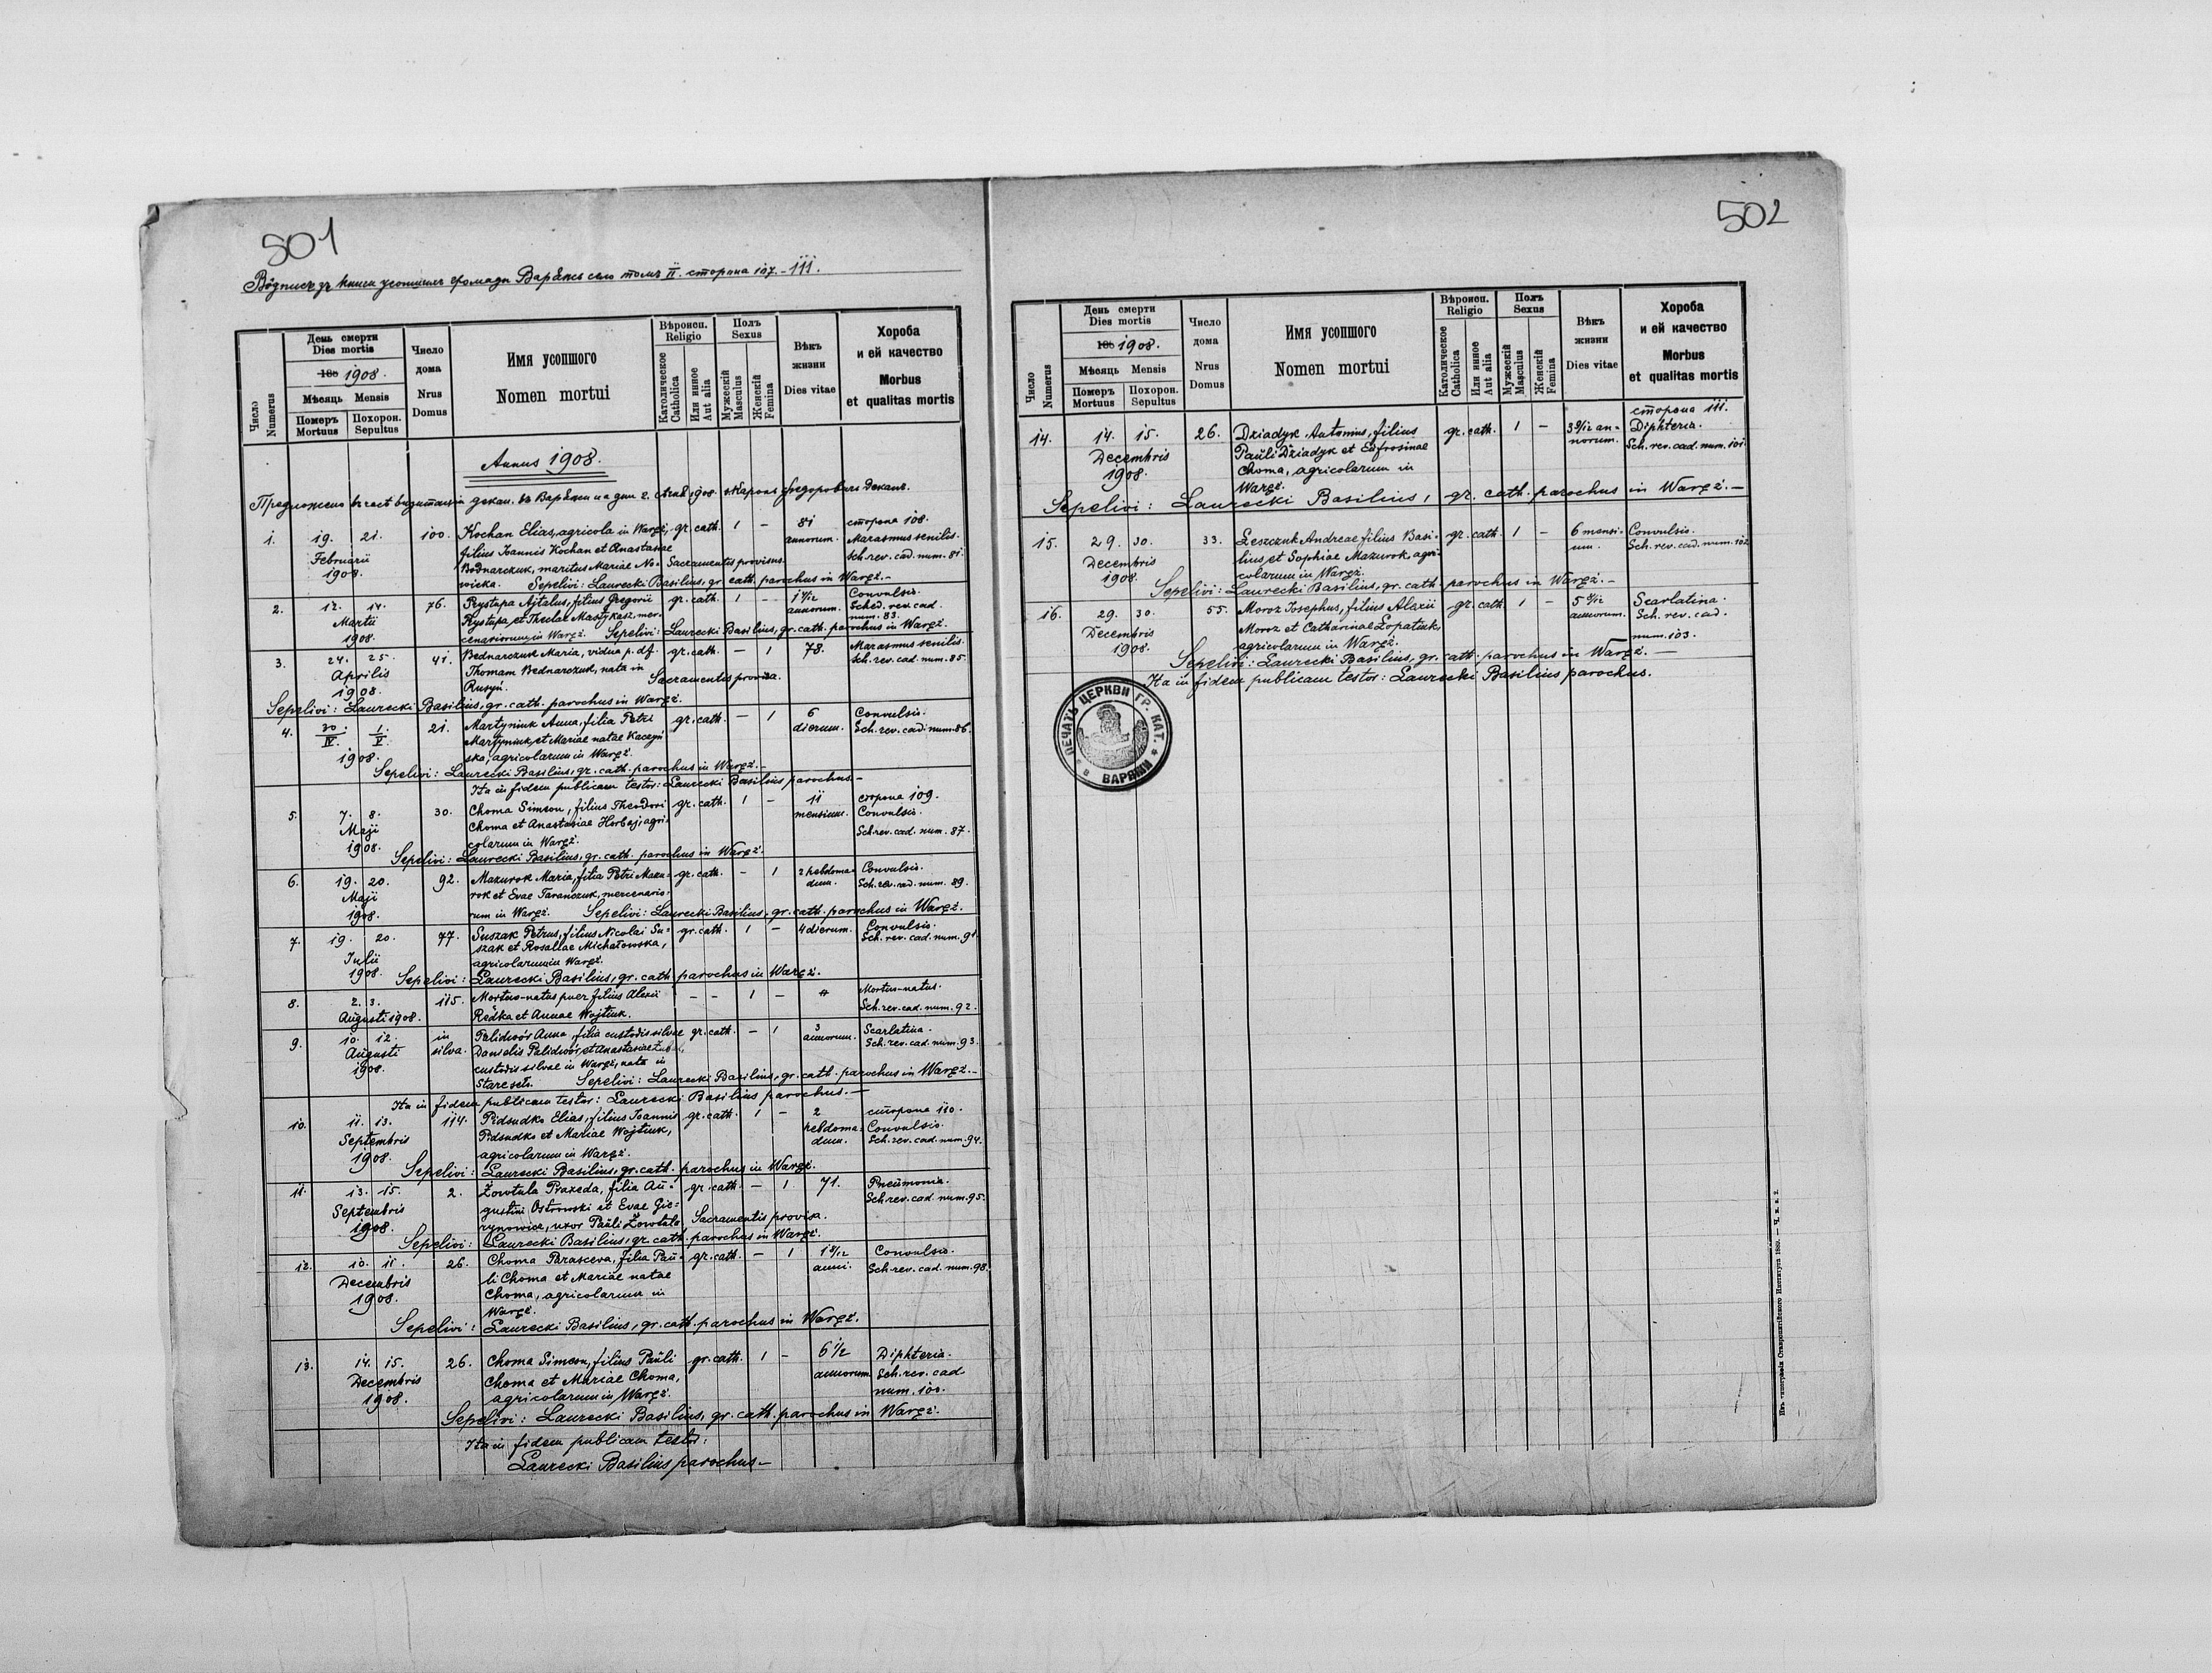 501
Вôдписъ зъ книги усопшихъ громады Варяжъ село томъ II. сторона 107.-111.
Число
Numerus
День смерти
Dies mortis
180 1908.
Мѣсяць Mensis
Померъ
Mortuus
Похорон.
Sepultus
Число
дома
Nrus
Domus
Имя усопшого
Nomen mortui
Вѣроисп.
Religio
Католическое
Catholica
Или инное
Aut alia
Полъ
Sexus
Мужескій
Masculus
Женскій
Femina
Вѣкъ
жизни
Dies vitae
Хороба
и ей качество
Morbus
et qualitas mortis
Annus 1908.
Предложено въ часѣ визитаціи декан. въ Варяжи на дни 2. 1908. Федоровичъ Деканъ.
1. 19. 21. 100. Kochan Elias, agricola in Waręż, gr. cath. 1 – 81 сторона 108.
Februarii filius Joannis Kochan et Anastasiae annorum. Marasmus senilis.
1908. Bodnarczuk, maritus Mariae No- Sacramentis provisus. Sch. rev. cad. num. 81.
wicka. Sepelivi: Laurecki Basilius, gr. cath. parochus in Waręż.–
2. 12. 14. 76. Rystupa Ajtalus, filius Gregorii gr. cath. 1 – 1 1/12 Convulsio.
Martii Rystupa, et Theclae Mastykasz, mer- annorum. Sched. rev. cad.
1908. cenariorum in Waręż. Sepelivi: Laurecki Basilius, gr. cath. parochus in Waręż. num. 83.
3. 24. 25. 41. Bednarczuk Maria, vidua p. df. gr. cath. – 1 78. Marasmus senilis.
Aprilis Thomam Bednarczuk, nata in Sch. rev. cad. num. 85.
1908. Rusyń. Sacramentis provisa.
Sepelivi: Laurecki Basilius, gr. cath. parochus in Waręż.
4. 30/IV. 1/V. 21. Martyniuk Anna, filia Petri gr. cath. – 1 6 Convulsio.
1908. Martyniuk, et Mariae natae Kaczyń dierum. Sch. rev. cad. num. 86.
ska, agricolarum in Waręż.
Sepelivi: Laurecki Basilius, gr. cath. parochus in Waręż.–
Ita in fidem publicam testor: Laurecki Basilius parochus.–
5. 7. 8. 30. Choma Simeon, filius Theodori gr. cath. 1 – 11 сторона 109.
Maji Choma et Anastasiae Horbaj, agri- mensium. Convulsio.
1908. colarum in Waręż. Sch. rev. cad. num. 87.
Sepelivi: Laurecki Basilius, gr. cath. parochus in Waręż.
6. 19. 20. 92. Mazurok Maria, filia Petri Mazu- gr. cath. – 1 2 hebdoma- Convulsio.
Maji rok et Evae Tarańczuk, mercenario- dum. Sch. rev. cad. num. 89.
1908. rum in Waręż. Sepelivi: Laurecki Basilius, gr. cath. parochus in Waręż.
7. 19. 20. 77. Suszak Petrus, filius Nicolai Su- gr. cath. 1 – 4 dierum. Convulsio.
Julii szak et Rosaliae Michałowska, Sch. rev. cad. num. 91.
1908. agricolarum in Waręż.
Sepelivi: Laurecki Basilius, gr. cath. parochus in Waręż.
8. 2. 3. 115. Mortuo-natus puer filius Alexii – – 1 – Mortuo-natus.
Augusti 1908. Redka et Annae Wojtiuk. Sch. rev. cad. num. 92.
9. 10. 12. in Palidwór Anna, filia custodis silvae gr. cath. – 1 3 Scarlatina.
Augusti silva. Danielis Palidwór, et Anastasiae annorum. Sch. rev. cad. num. 93.
1908. custodis silvae in Waręż, nata in
Staresel. Sepelivi: Laurecki Basilius, gr. cath. parochus in Waręż.–
Ita in fidem publicam testor: Laurecki Basilius parochus.–
10. 11. 13. 114. Pidsudko Elias, filius Joannis gr. cath. 1 – 2 сторона 110.
Septembris Pidsudko et Mariae Wojtiuk, hebdoma- Convulsio.
1908. agricolarum in Waręż. dum. Sch. rev. cad. num. 94.
Sepelivi: Laurecki Basilius, gr. cath. parochus in Waręż.
11. 13. 15. 2. Żowtula Praxeda, filia Au- gr. cath. – 1 71. Pneumonia.
Septembris gustini Ostrowski et Evae Gie- Sch. rev. cad. num. 95.
1908. rynowicz, uxor Pauli Żowtula Sacramentis provisa.
Sepelivi: Laurecki Basilius, gr. cath. parochus in Waręż.
12. 10. 11. 26. Choma Parasceva, filia Pau- gr. cath. – 1 1 8/12 Convulsio.
Decembris li Choma et Mariae natae anni. Sch. rev. cad. num. 98.
1908. Choma, agricolarum in
Waręż.
Sepelivi: Laurecki Basilius, gr. cath. parochus in Waręż.
13. 14. 15. 26. Choma Simeon, filius Pauli gr. cath. 1 – 6 1/2 Diphteria.
Decembris Choma et Mariae Choma, annorum Sch. rev. cad
1908. agricolarum in Waręż. num. 100.
Sepelivi: Laurecki Basilius, gr. cath. parochus in Waręż.
Ita in fidem publicam testor:
Laurecki Basilius parochus.–
502
Число
Numerus
День смерти
Dies mortis
180 1908.
Мѣсяць Mensis
Померъ
Mortuus
Похорон.
Sepultus
Число
дома
Nrus
Domus
Имя усопшого
Nomen mortui
Вѣроисп.
Religio
Католическое
Catholica
Или инное
Aut alia
Полъ
Sexus
Мужескій
Masculus
Женскій
Femina
Вѣкъ
жизни
Dies vitae
Хороба
и ей качество
Morbus
et qualitas mortis
сторона 111.
14. 14. 15. 26. Dziadyk Antonius, filius gr. cath. 1 – 3 9/12 an- Diphteria.
Decembris Pauli Dziadyk et Eufrosinae norum. Sch. rev. cad. num. 101.
1908. Choma, agricolarum in
Waręż.
Sepelivi: Laurecki Basilius, gr. cath. parochus in Waręż.–
15. 29. 30. 33. Leszczuk Andreae filius Basi- gr. cath. 1 – 6 mensi- Convulsio.
Decembris lius, et Sophiae Mazurok agri- um. Sch. rev. cad. num. 102
1908. colarum in Waręż.
Sepelivi: Laurecki Basilius, gr. cath. parochus in Waręż.–
16. 29. 30. 55. Moroz Josephus, filius Alexii gr. cath. 1 – 5 Scarlatina.
Decembris Moroz et Catharinae Łopatiuk, annorum. Sch. rev. cad.
1908. agricolarum in Waręż. num. 103.
Sepelivi: Laurecki Basilius, gr. cath. parochus in Waręż.–
Ita in fidem publicam testor: Laurecki Basilius parochus.
ПЕЧАТЬ ЦЕРКВИ ГР. КАТ. * ВАРЯЖИ *
Изъ типографіи Ставропигійского Института 1889. — Ч. в. а. 2.